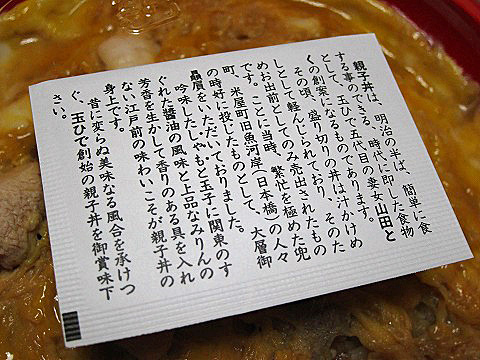 親子丼は、明治の半ば、簡単に食
する事のできる、時代に即した食物
として、玉ひで五代目の妻女山田と
くの創案になるものであります。
その頃、盛り切りの丼は汁かけめ
しとして軽んじられており、そのた
めお出前としてのみ売出されたもの
です。ことに当時、繁忙を極めた兜
町、米屋町旧魚河岸(日本橋)の人々
の時好に投じたものとして、大層御
贔屓を、いただいておりました。
吟味したしゃもと玉子に関東のす
ぐれた醬油の風味と上品なみりんの
芳香を生かして香りのある具を入れ
ない、江戸前の味わいこそが親子丼の
身上です。
昔に変らぬ美味なる風合を承けつ
ぐ、玉ひで創始の親子丼を御賞味下
さい。